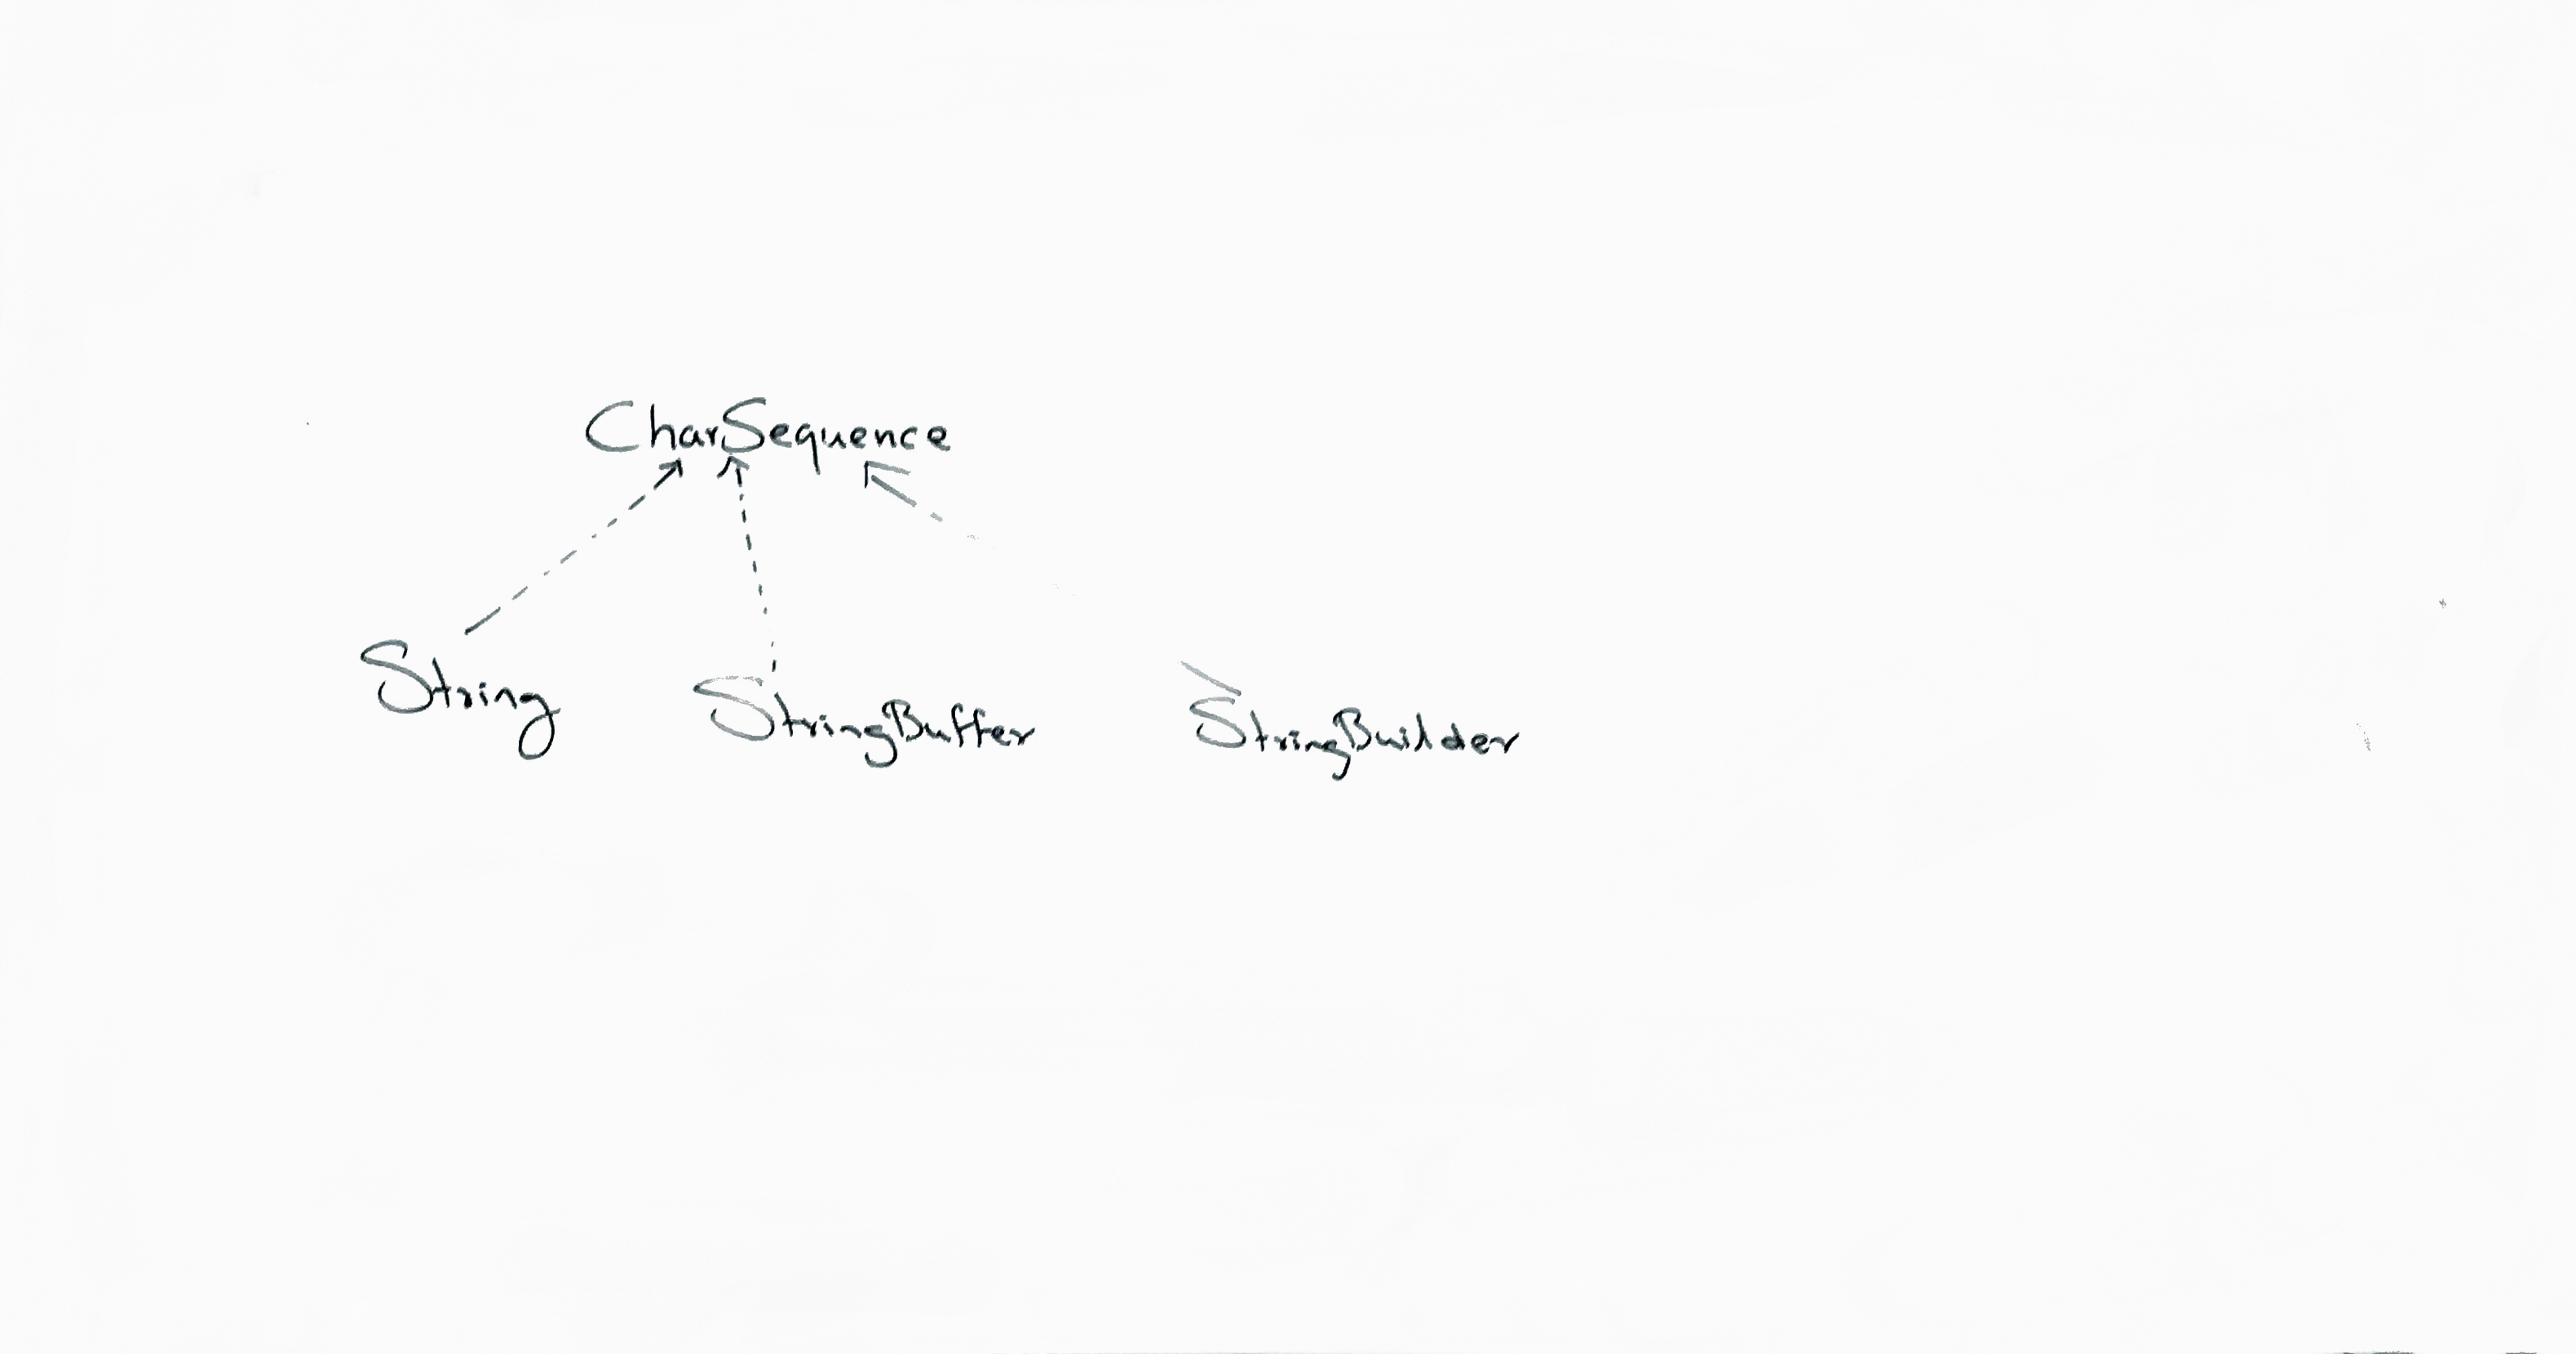 CharSequence
String StringBuffer StringBuilder